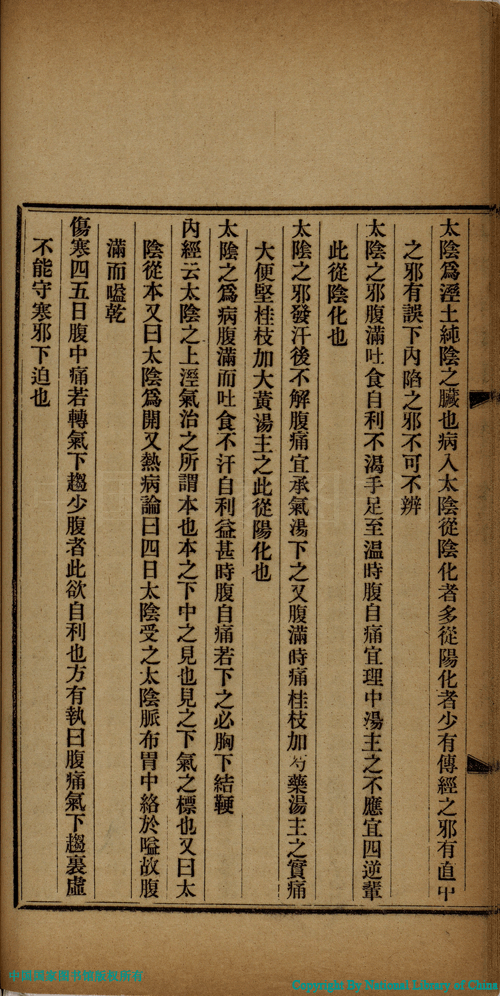 太陰爲溼土純陰之臟也病入太陰從陰化者多從陽化者少有傳經之邪有直中
之邪有誤下內陷之邪不可不辨
太陰之邪腹滿吐食自利不渴手足至温時腹自痛宜理中湯主之不應宜四逆輩
此從陰化也
太陰之邪發汗後不解腹痛宜承氣湯下之又腹滿時痛桂枝加芍藥湯主之實痛
大便堅桂枝加大黃湯主之此從陽化也
太陰之爲病腹滿而吐食不汗自利益甚時腹自痛若下之必胸下結鞕
內經云太陰之上溼氣治之所謂本也本之下中之見也見之下氣之標也又曰太
陰從本又曰太陰爲開又熱病論曰四日太陰受之太陰脈布胃中絡於嗌故腹
滿而嗌乾
傷寒四五日腹中痛若轉氣下趨少腹者此欲自利也方有執曰腹痛氣下趨裏虛
不能守寒邪下迫也
中国国家图书馆版权所有
Copyright By National Library of China